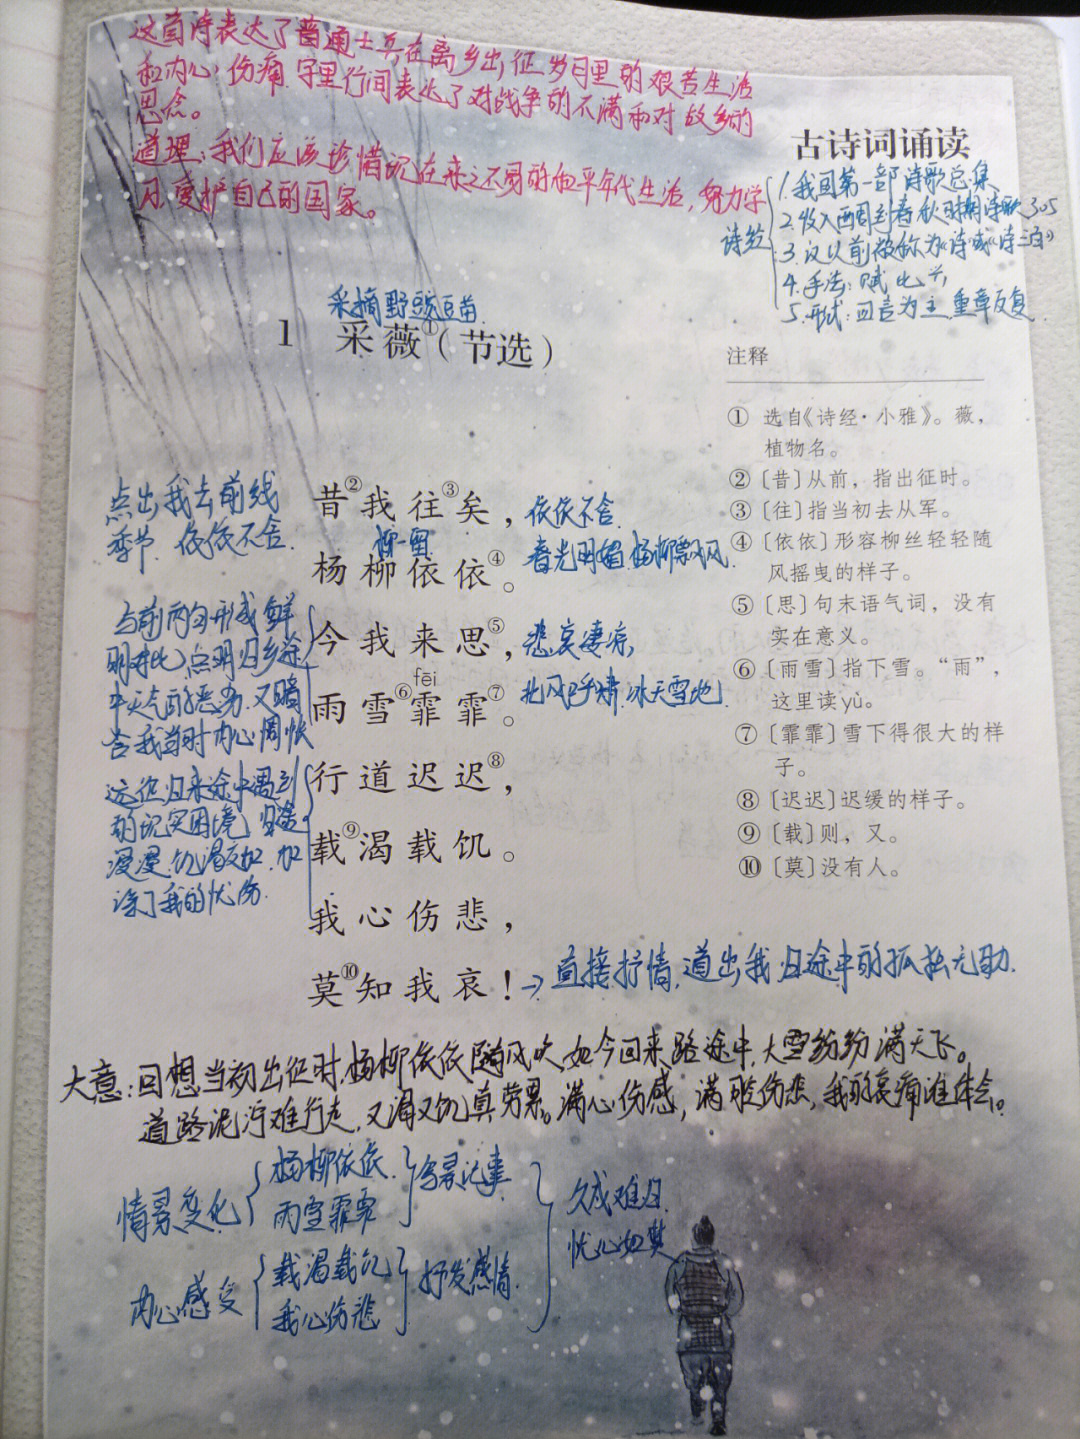 这首诗表达了普通士兵在离乡出征岁月里的艰苦生活
和内心伤痛.字里行间表达了对战争的不满和对故乡的
思念。
道理:我们应该珍惜现在来之不易的和平年代生活,努力学
习,爱护自己的国家。
古诗词诵读
诗经
1.我国第一部诗歌总集
2.收入西周到春秋时期诗歌305
3.汉以前被称为《诗》或《诗三百》
4.手法:赋 比 兴
5.形式:四言为主,重章反复
采摘野豌豆苗
1 采薇①(节选)
昔②我往③矣,
杨柳依依④。
今我来思⑤,
fēi
雨雪⑥霏霏⑦。
行道迟迟⑧,
载⑨渴载饥。
我心伤悲,
莫⑩知我哀!
点出我去前线
季节.依依不舍.
依依不舍.
柳—留
春光明媚.杨柳飘风.
与前两句形成鲜
明对比,点明归乡途
中天气的恶劣.又暗
含我当时内心惆怅
悲哀凄凉,
北风呼啸.冰天雪地
远征归来途中遇到
的现实困境,归途
漫漫.饥渴交加.加
深了我的忧伤.
→直接抒情,道出我归途中的孤独无助.
注释
① 选自《诗经·小雅》。薇,
植物名。
② 〔昔〕从前,指出征时。
③ 〔往〕指当初去从军。
④ 〔依依〕形容柳丝轻轻随
风摇曳的样子。
⑤ 〔思〕句末语气词,没有
实在意义。
⑥ 〔雨雪〕指下雪。“雨”,
这里读yù。
⑦ 〔霏霏〕雪下得很大的样
子。
⑧ 〔迟迟〕迟缓的样子。
⑨ 〔载〕则,又。
⑩ 〔莫〕没有人。
大意:回想当初出征时,杨柳依依随风吹,如今回来路途中,大雪纷纷满天飞。
道路泥泞难行走,又渴又饥真劳累。满心伤感,满腔伤悲,我的哀痛谁体会。
情景变化
杨柳依依.
雨雪霏霏
写景记事
内心感受
载渴载饥
我心伤悲
抒发感情.
久戍难归.
忧心如焚